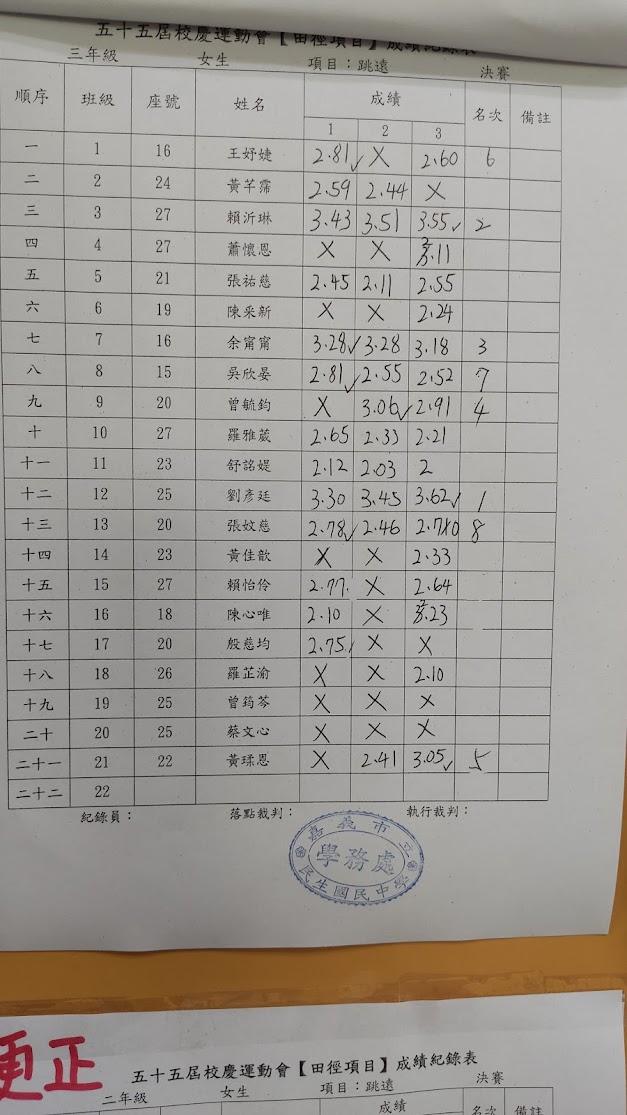 五十五屆校慶運動會【田徑項目】成績紀錄表
三年級 女生 項目：跳遠 決賽
順序 班級 座號 姓名 成績 名次 備註
1 2 3
一 1 16 王妤婕 2.81✓ X 2.60 6
二 2 24 黃芊霈 2.59 2.44 X
三 3 27 賴沂琳 3.43 3.51 3.55✓ 2
四 4 27 蕭懷恩 X X 2.11
五 5 21 張祐慈 2.45 2.11 2.55
六 6 19 陳采新 X X 2.24
七 7 16 余甯甯 3.28✓ 3.28 3.18 3
八 8 15 吳欣晏 2.81✓ 2.55 2.52 7
九 9 20 曾毓鈞 X 3.06✓ 2.91 4
十 10 27 羅雅葳 2.65 2.33 2.21
十一 11 23 舒詺媞 2.12 2.03 2
十二 12 25 劉彥廷 3.30 3.45 3.62✓ 1
十三 13 20 張妏慈 2.78✓ 2.46 2.70 8
十四 14 23 黃佳歆 X X 2.33
十五 15 27 賴怡伶 2.77 X 2.64
十六 16 18 陳心唯 2.10 X 2.23
十七 17 20 殷慈均 2.75 X X
十八 18 26 羅芷渝 X X 2.10
十九 19 25 曾筠芩 X X X
二十 20 25 蔡文心 X X X
二十一 21 22 黃瑈恩 X 2.41 3.05✓ 5
二十二 22
紀錄員： 落點裁判： 執行裁判：
嘉義市立
學務處
民生國民中學
更正
五十五屆校慶運動會【田徑項目】成績紀錄表
二年級 女生 項目：跳遠 決賽
成績 名次 備註